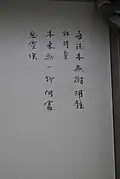 菩提本無樹明鏡
亦非臺
本來無一物何處
惹塵埃